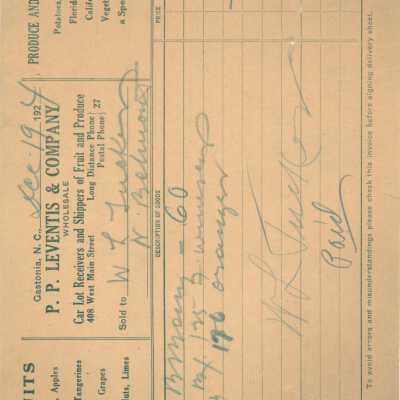 UITS
PRODUCE AND
Apples
Tangerines
Grapes
uts, Limes
Potatoes,
Florida
Califo
Veget
a Spec
Gastonia, N. C., Dec 19 1924
P. P. LEVENTIS & COMPANY
WHOLESALE
Car Lot Receivers and Shippers of Fruit and Produce
408 West Main Street
Long Distance Phone
Postal Phone
27
Sold to W L Tucker
N. Belmont
DESCRIPTION OF GOODS
60
Bx 125
176 oranges
W L Tucker
Paid
To avoid errors and misunderstandings please check this invoice before signing delivery sheet.